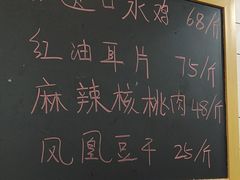 口水鸡 68/斤
红油耳片 75/斤
麻辣核桃肉 48/斤
凤凰豆干 25/斤